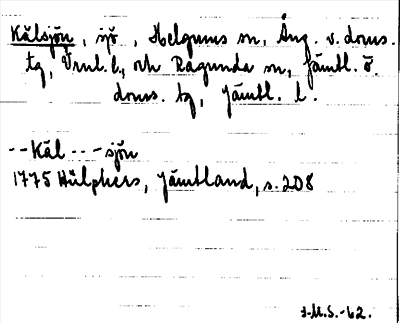 Kälsjön, sjö, Helgums sn, Ång. v. doms.
tg, Vrnl. l., och Ragunda sn, Jämtl. ö.
doms. tg, Jämtl. l.
--Käl---sjön
1775 Hülphers, Jämtland, s. 208
J.M.S.-62.